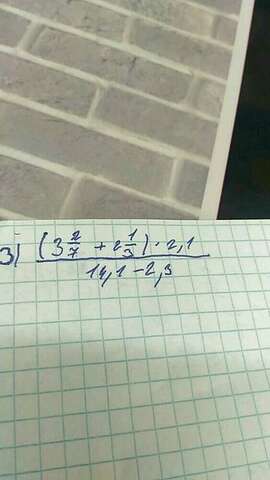 3) (3 2/7 + 2 1/3) · 2,1
14,1 - 2,3